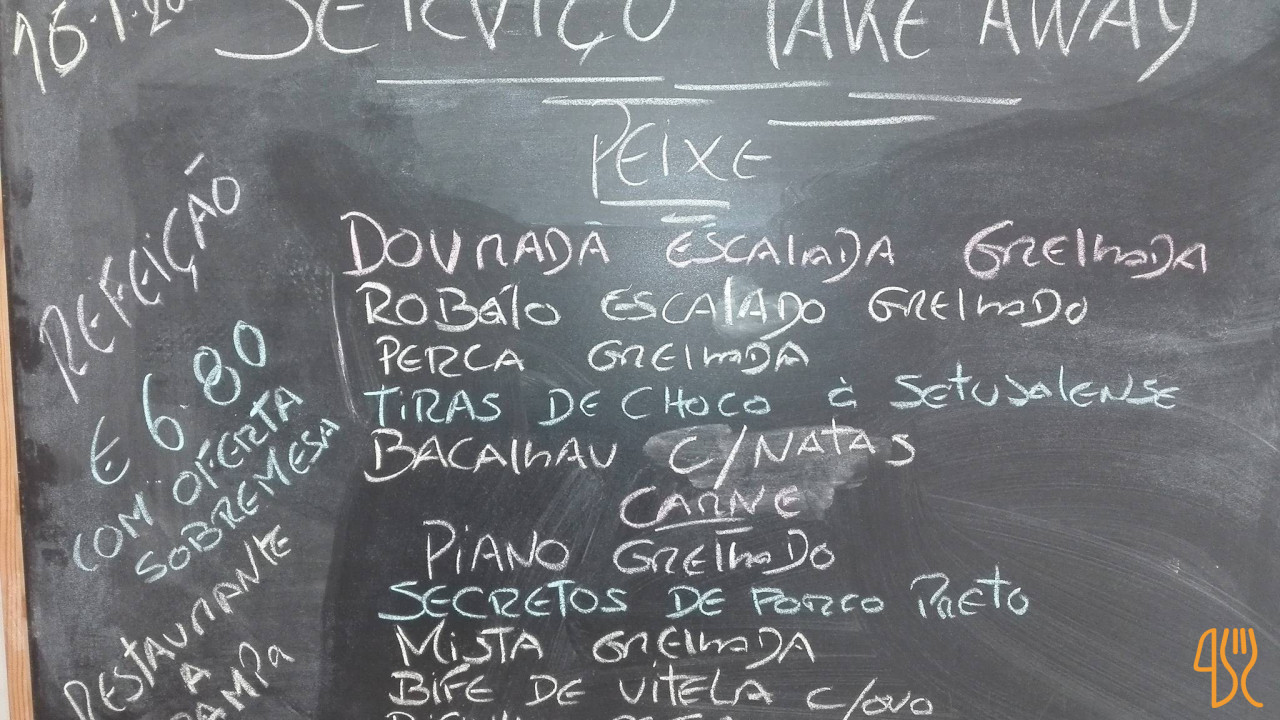 16.1.20
SERVIÇO TAKE AWAY
PEIXE
DOURADA ESCALADA GRELHADA
ROBALO ESCALADO GRELHADO
PERCA GRELHADA
TIRAS DE CHOCO à SETUBALENSE
BACALHAU C/NATAS
CARNE
PIANO GRELHADO
SECRETOS DE PORCO PRETO
MISTA GRELHADA
BIFE DE VITELA C/OVO
REFEIÇÃO
€ 6.80
COM OFERTA
SOBREMESA
RESTAURANTE
A
RAMPA